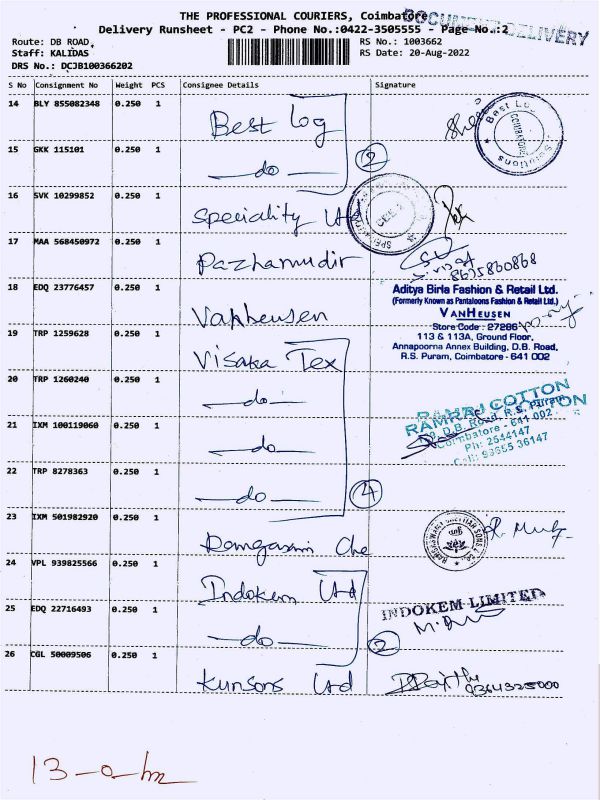 THE PROFESSIONAL COURIERS, Coimbatore
DOCUMENT DELIVERY
Delivery Runsheet - PC2 - Phone No.:0422-3505555 - Page No.:2
Route: DB ROAD
RS No.: 1003662
Staff: KALIDAS
RS Date: 20-Aug-2022
DRS No.: DCJB100366202
S No Consignment No Weight PCS Consignee Details Signature
14 BLY 855082348 0.250 1 Best Log
15 GKK 115101 0.250 1 —do— 2
Best Lo
COIMBATORE
Solutions
16 SVK 10299852 0.250 1 Speciality Ltd
17 MAA 568450972 0.250 1 Pazhamudir
8695860868
18 EDQ 23776457 0.250 1 Vanheusen
Aditya Birla Fashion & Retail Ltd.
(Formerly Known as Pantaloons Fashion & Retail Ltd.)
VANHEUSEN
Store Code : 27286
113 & 113A, Ground Floor,
Annapoorna Annex Building, D.B. Road,
R.S. Puram, Coimbatore - 641 002
19 TRP 1259628 0.250 1 Visaka Tex
20 TRP 1260240 0.250 1 —do—
21 IXM 100119060 0.250 1 —do—
22 TRP 8278363 0.250 1 —do— 4
RAMRAJ COTTON
D.B. Road, R.S. Puram
Coimbatore - 641 002
Ph: 2544147
23 IXM 501982920 0.250 1
24 VPL 939825566 0.250 1 Indokem Ltd
25 EDQ 22716493 0.250 1 —do— 2
INDOKEM LIMITED
26 CGL 50009506 0.250 1 Kunsons Ltd
9364325000